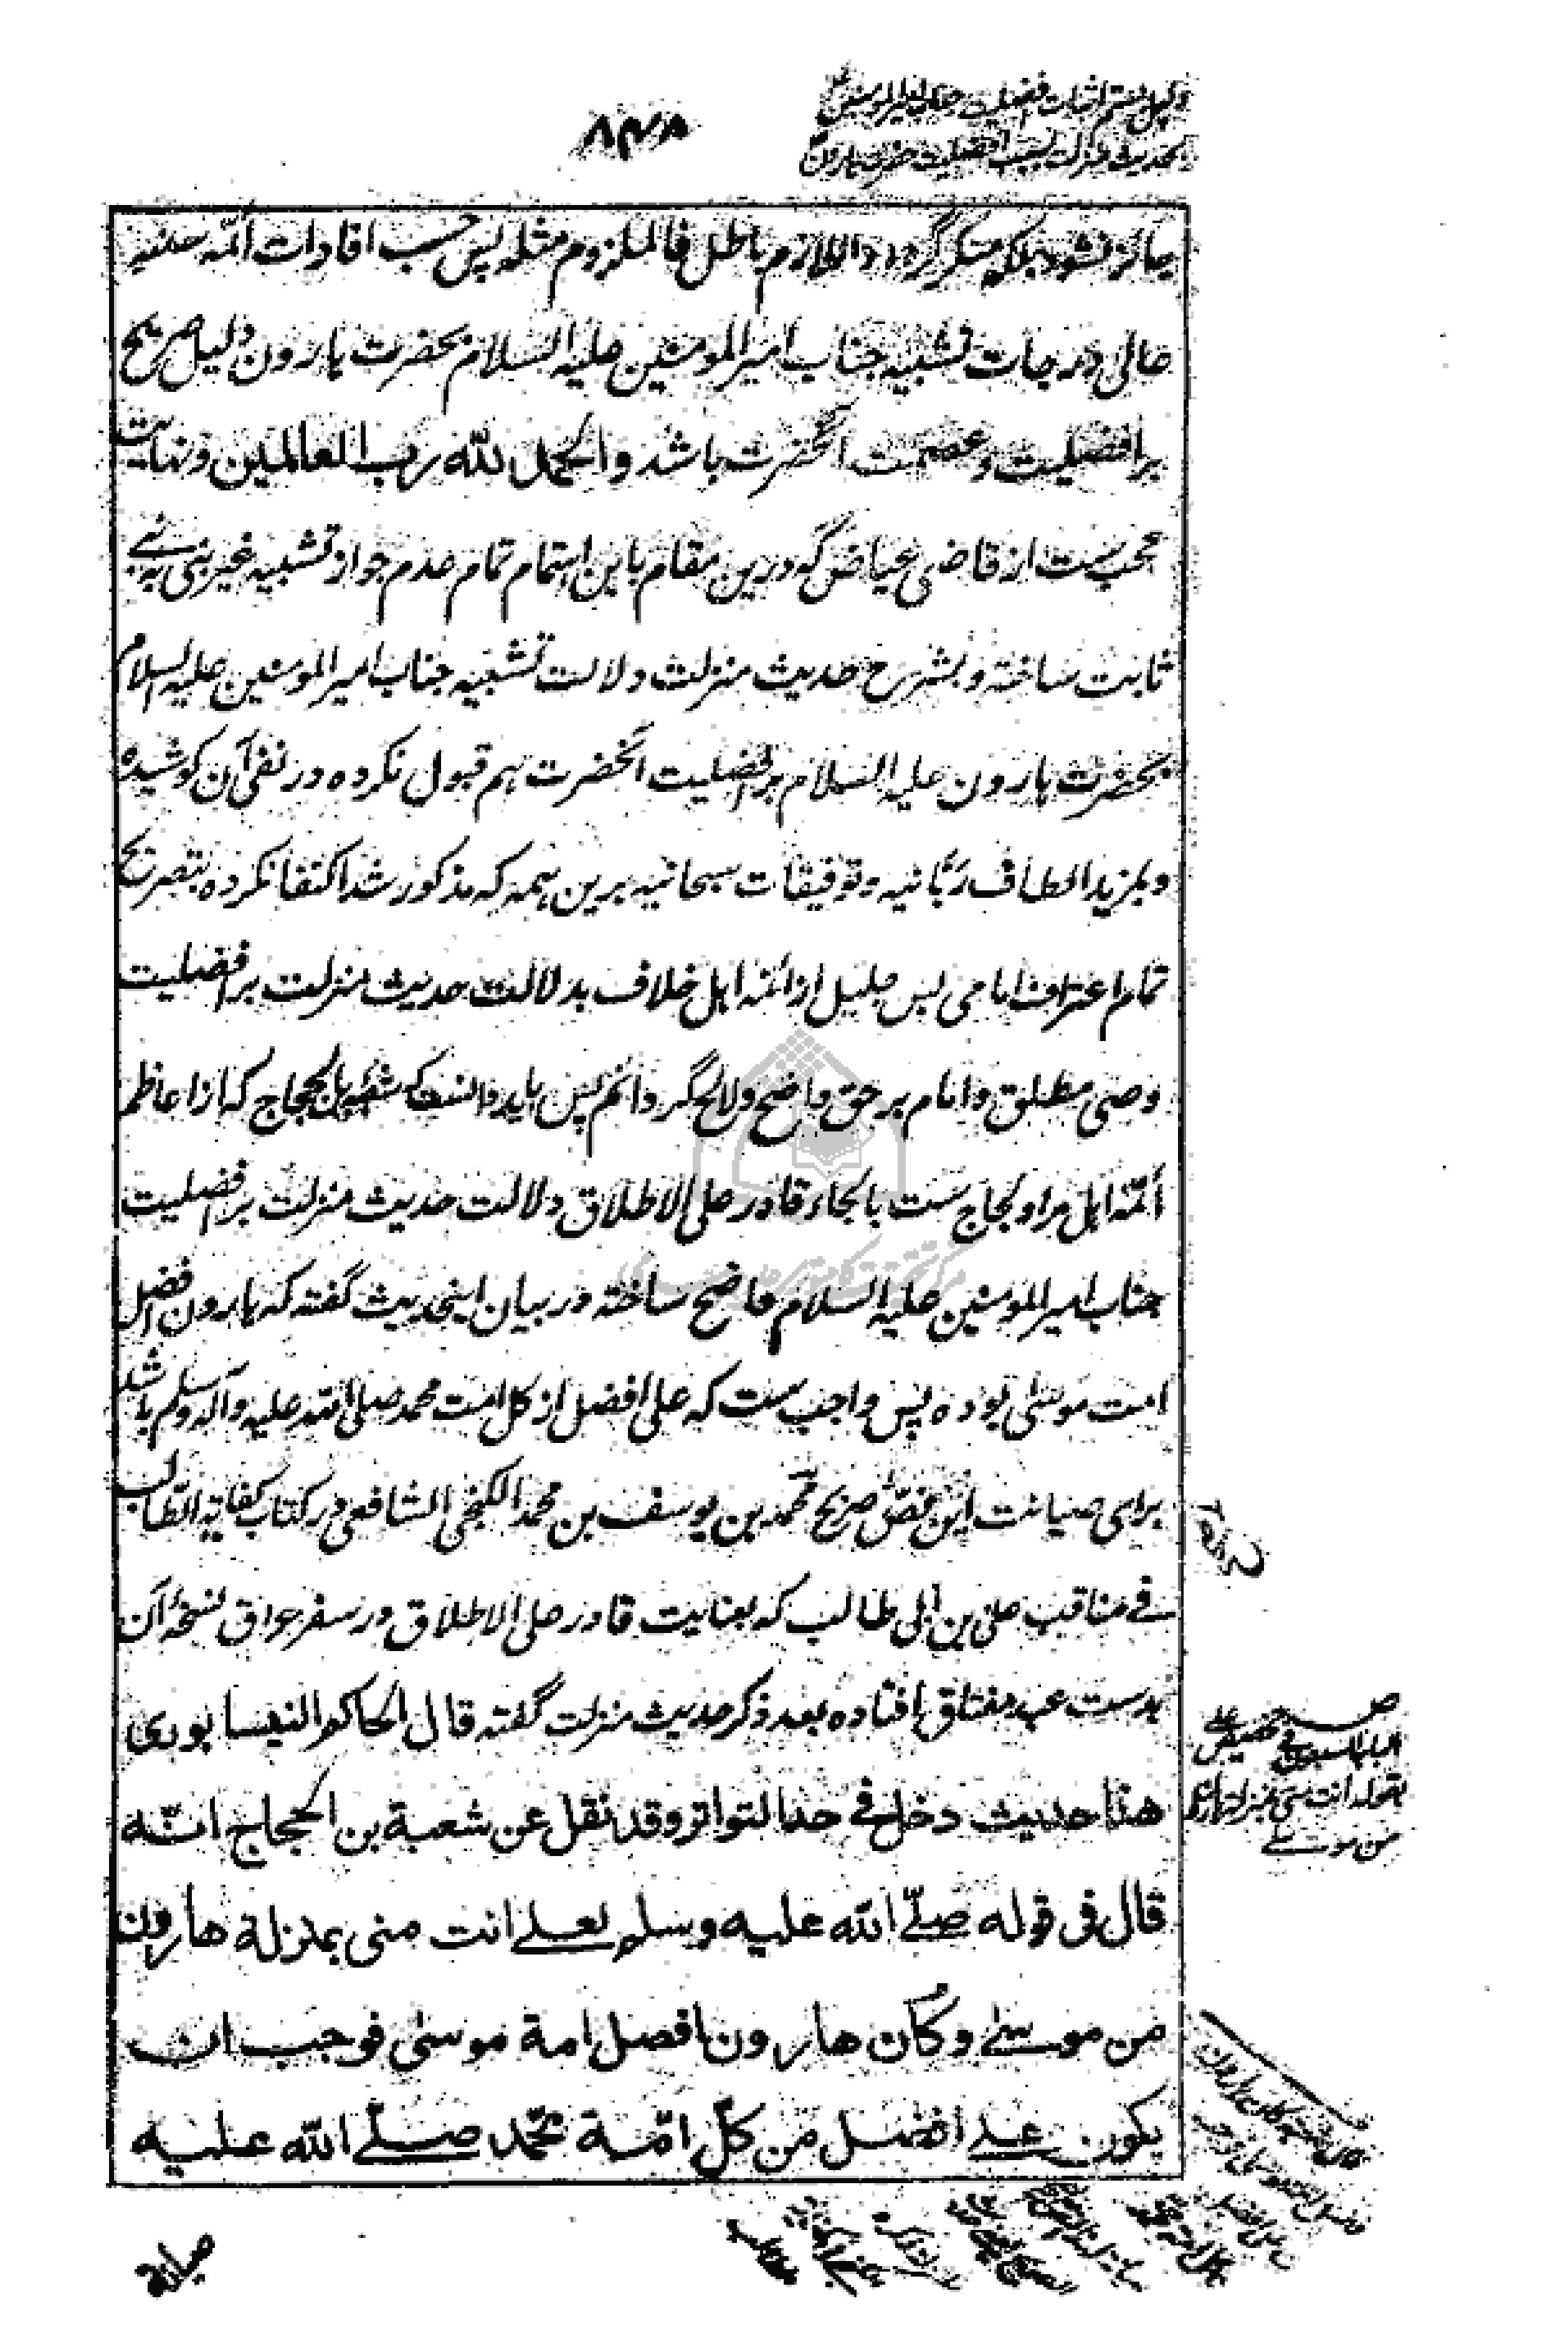 دلیل هفتم اثبات افضلیت جناب امیرالمومنین
بحدیث منزلت بسبب افضلیت حضرت هارون
جائز نشود بلکه منکر گردد واللازم باطل فالملزوم مثله پس حسب افادات ائمه سنیه
عالی درجات تشبیه جناب امیرالمومنین علیه السلام بحضرت هارون دلیل صریح
بر افضلیت و عصمت آنحضرت باشد والحمد لله رب العالمین و نهایت
عجب ست از قاضی عیاض که درین مقام باین اهتمام تمام عدم جواز تشبیه غیر نبی به نبی
ثابت ساخته و بشرح حدیث منزلت دلالت تشبیه جناب امیرالمومنین علیه السلام
بحضرت هارون علیه السلام بر افضلیت آنحضرت هم قبول نکرده در نفی آن کوشیده
و بمزید الطاف ربّانیه و توفیقات سبحانیه برین همه که مذکور شد اکتفا نکرده بتصریح
تمام اعتراف امامی بس جلیل از ائمه اهل خلاف بدلالت حدیث منزلت بر افضلیت
وصی مطلق و امام بر حق واضح و لائح گردانم پس باید دانست که شعبه بن الحجاج که از اعاظم
ائمّه اهل مرا و لجاج ست بالجاء قادر علی الاطلاق دلالت حدیث منزلت بر افضلیت
جناب امیرالمومنین علیه السلام واضح ساخته در بیان اینحدیث گفته که هارون افضل
امت موسی بوده پس واجب ست که علی افضل از کل امت محمد صلی الله علیه وآله وسلم باشد
برای صیانت این نصّ صریح محمد بن یوسف بن محمد الکنجی الشافعی در کتاب کفایة الطّالب
فے مناقب علی بن ابی طالب که بعنایت قادر علی الاطلاق در سفر عراق نسخهٔ آن
بدست عبد مفتاق افتاده بعد ذکر حدیث منزلت گفته قال الحاکم النیسابوری
هذا حدیث دخل فی حد التواتر وقد نقل عن شعبة بن الحجاج انّه
قال فی قوله صلّے الله علیه وسلم لعلے انت منی بمنزلة هارون
من موسیٰ وکان هارون افضل امة موسیٰ فوجب ان
یکون علے افضل من کلّ امّة محمّد صلّے الله علیه
الباب السبعون فی تخصیص علے
بقوله انت منی بمنزلة هارون
من موسے
صیانة